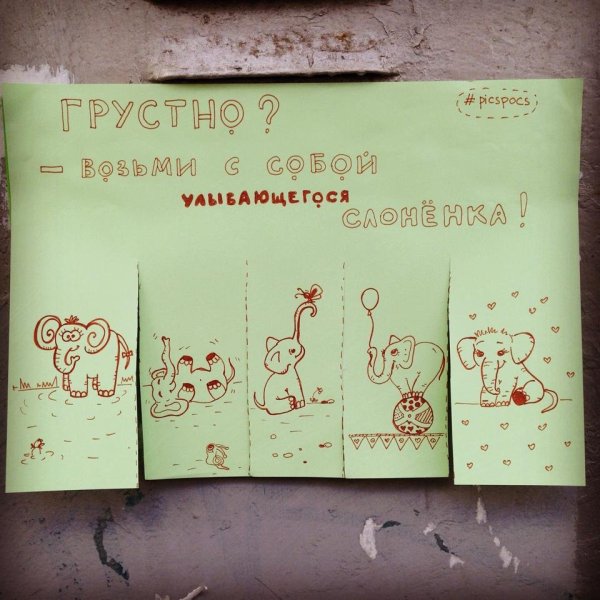 #picspocs
ГРУСТНО?
— ВОЗЬМИ С СОБОЙ
УЛЫБАЮЩЕГОСЯ
СЛОНЁНКА!